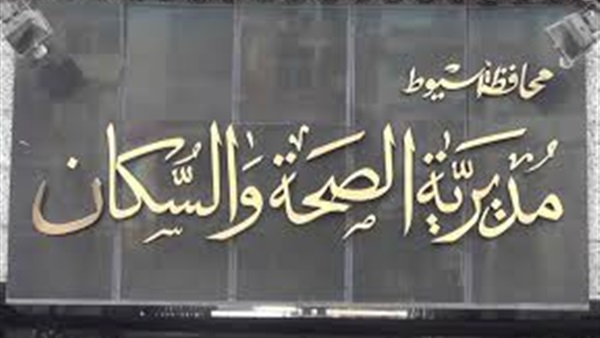 محافظة أسيوط
مُديريَّة الصحَة وَالسُّكان